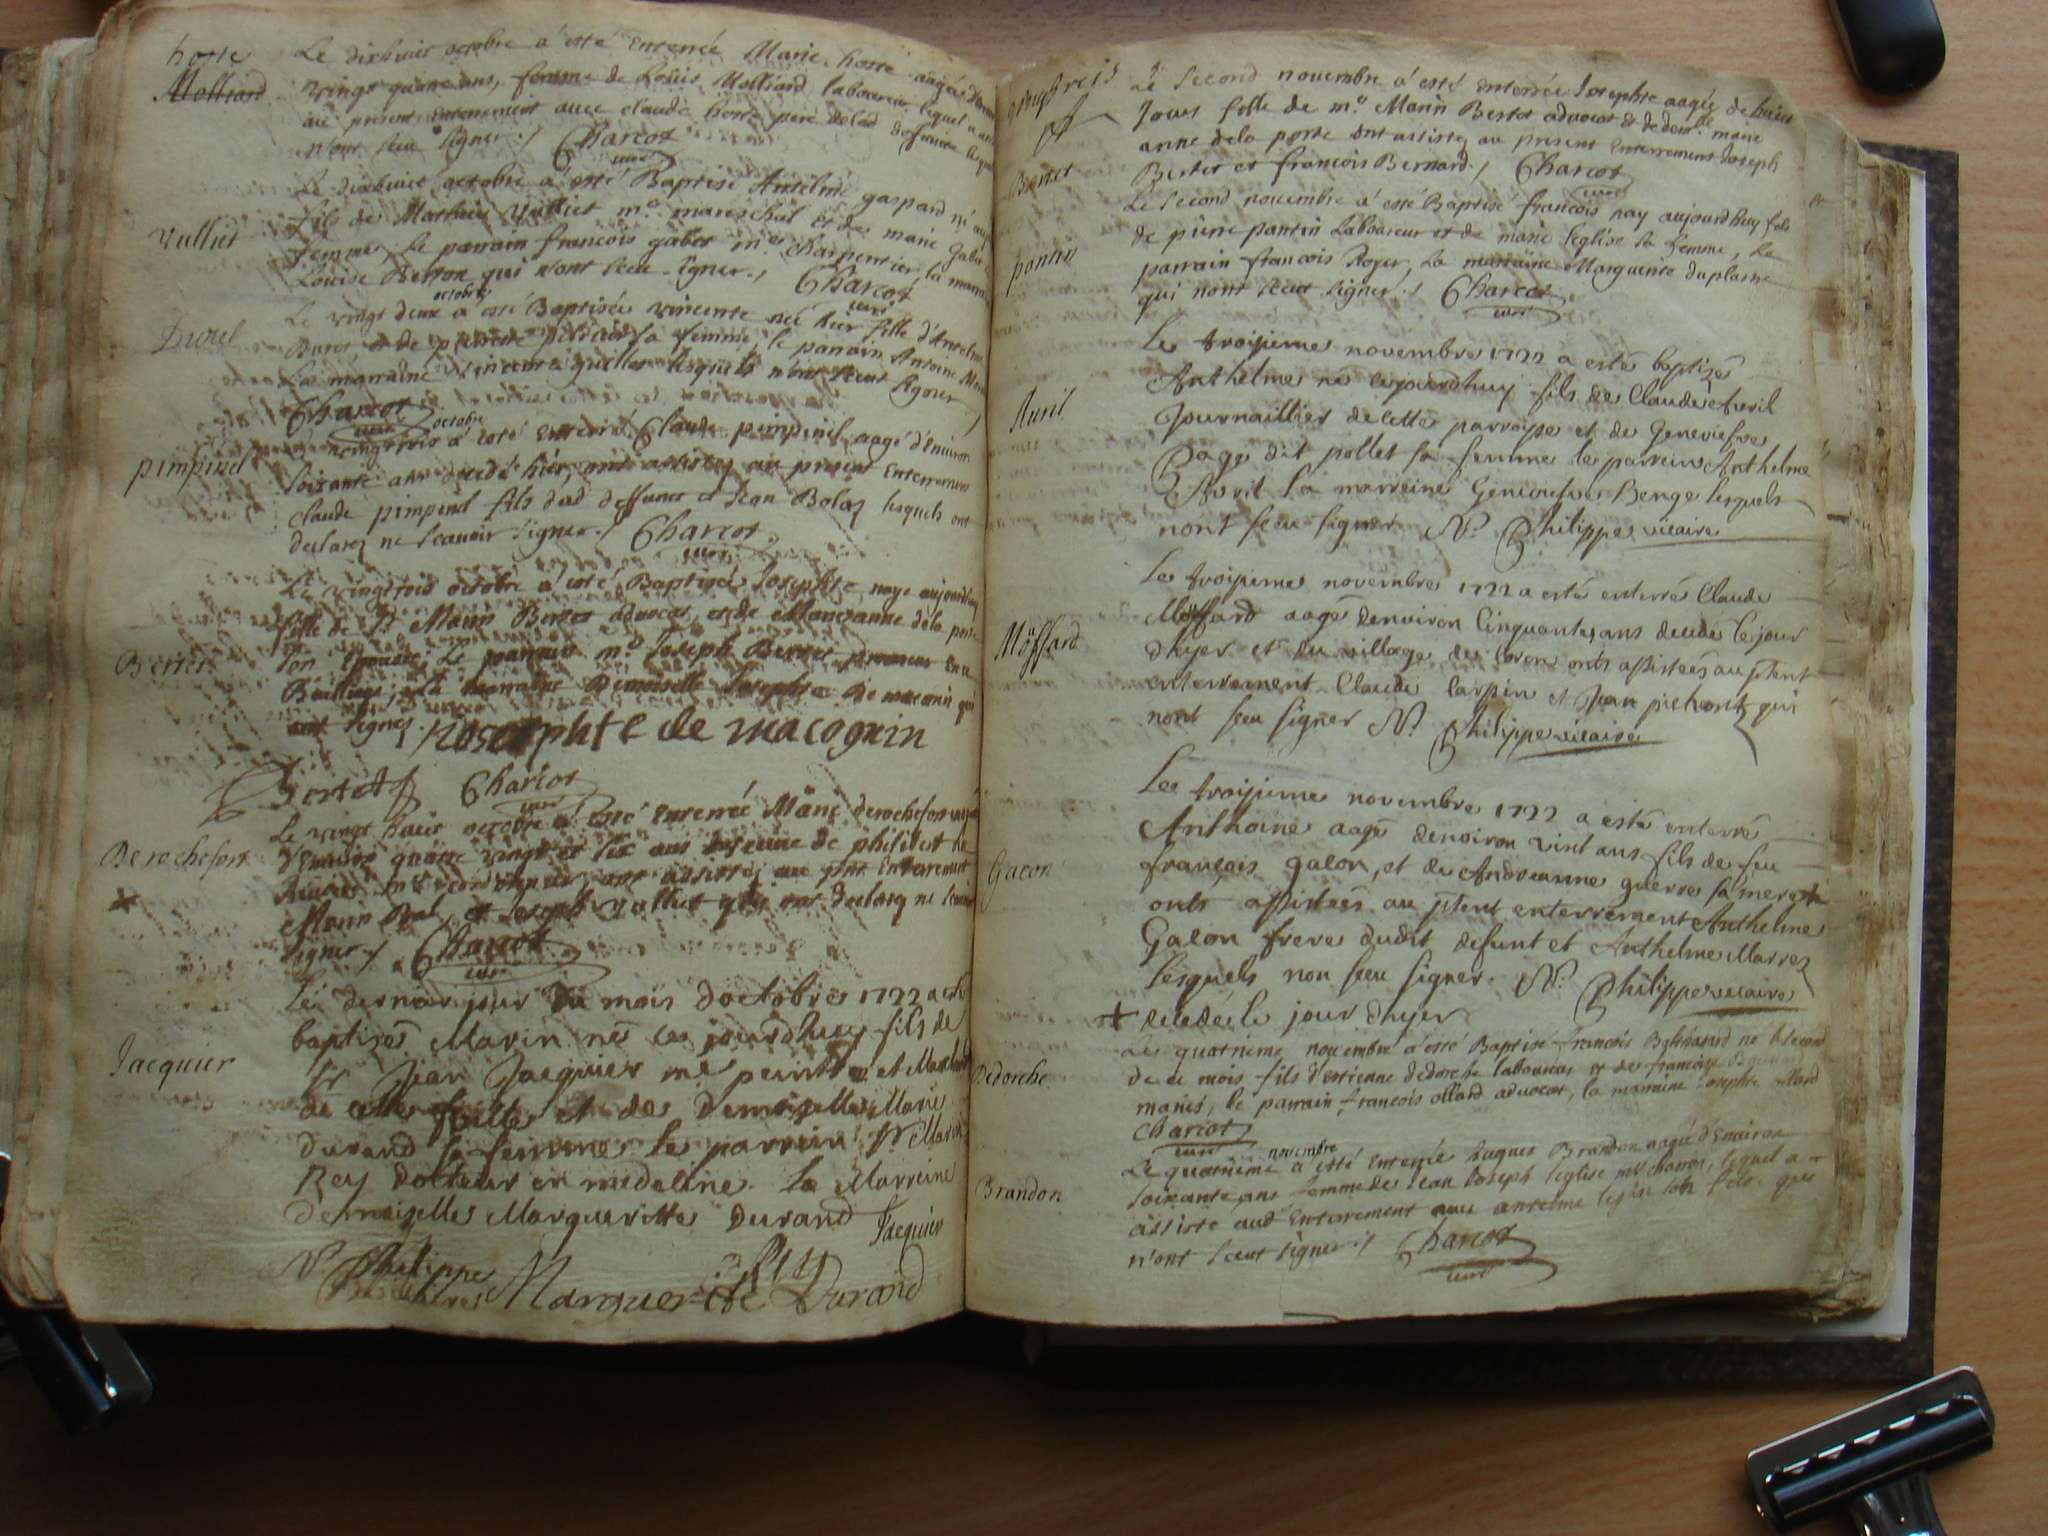 horte
Molliard
Le dixhuict octobre a esté Enterrée Marie horte aagée
vingt quatre ans, femme de Loüis Molliard laboureur lequel a
au present Enterrement avec claude horte pere de lad deffuncte
n'ont sceu signer ./ Charcot
curé
Vulliet
Le dixhuict octobre a esté Baptisé Anselme gaspard né
fils de Mathieu Vulliet me mareschal et de marie Gaber
femme, Le parrain francois gaber me charpentier la marra
Louise Berton qui n'ont sceu signer ./ Charcot
curé
Buret
octobre
Le vingt deux a esté Baptisée vincente née hier fille d'Anselme
Buret et de pierrette sa femme, le parrain Antoine
La marraine lesquels n'ont sceut signer ./
Charcot
curé
pimpinel
octobre
vingttrois a esté Enterré Claude pimpinel aagé d'Environ
soixante ans decedé hier, ont assistez au present Enterrement
claude pimpinel fils dud deffunct et Jean Bolaz lesquels ont
declarez ne scavoir signer ./ Charcot
curé
Bertet
Le vingttrois octobre a esté Baptisée Josephte naye aujourdhuy
fille de Sr Marin Bertet advocat, et de Marieanne dela porte
son Epouse, Le parrain me Joseph Bertet procureur en ce
Bailliage, et la marraine Demoiselle Josephte De maconin qui
ont signez ./ Noseephte de macognin
Bertet Charcot
curé
De rochefort
Le vingt huict octobre a esté Enterrée Marie derochefort
d'Environ quatre vingt et six ans de philibert
me cordonnier, ont assistez au pnt Enterrement
Marin et Joseph Vulliet qui ont declarez ne scavoir
signer ./ Charcot
curé
Jacquier
Le dernier jour du mois doctobre 1722 a esté
baptizé Marin né ce jourdhuy fils de
Sr Jean Jacquier me peintre et Marchand
de cette ville et de Demoiselle Marie
Durand sa femme le parrein Sr Marin
Rey docteur en medecine la Marreine
demoiselle Marguerite Durand
Jacquier
N. Philippe Rey
vicaire Marguerite Durand
Le second novembre a esté enterrée Josephte aagée de huict
jours fille de me Marin Bertet advocat et de dem. marie
anne dela porte ont assistez au present Enterrement Joseph
Bertet et francois Bernard ./ Charcot
curé
Bertet
pantin
Le second novembre a esté Baptisé francois nay aujourdhuy fils
de pierre pantin Laboureur et de marie leglise sa femme, Le
parrain francois Royer, La marraine Marguerite duplasne
qui nont sceut signer ./ Charcot
curé
Avril
Le troisieme novembre 1722 a esté baptizé
Anthelme né cejourdhuy fils de Claude Avril
Journaillier de cette parroisse et de Geneviefve
Page dit pollet sa femme le parrein Anthelme
Avril la marreine Genevieve Berge lesquels
nont sceu signer N. Philippe vicaire
Moffard
Le troisieme novembre 1722 a esté enterré Claude
Moffard aagé denviron Cinquante ans decedé le jour
dhyer et du village de Coron onts assistées au ptent
enterrement Claude Carpin et Jean pichont qui
nont sceu signer N. Philippe vicaire
Gacon
Le troisieme novembre 1722 a esté enterré
Anthoine aagé denviron vint ans fils de feu
françois gacon, et de Andréanne guerre sa mere +
onts assistées au ptent enterrement Anthelme
Gacon frere dudit defunt et Anthelme Marrez
lesquels non sceu signer. N. Philippe vicaire
+ decedé le jour dhyer
Dedorche
Le quatrieme novembre a esté Baptisé francois Balthasard né le second
de ce mois fils d'estienne dedorche laboureur et de francoise
mariés, le parrain francois ollard advocat, la marraine Josephte ollard
Charcot
curé
Brandon
novembre
Le quatrieme a esté Enterrée huguet Brandon aagée d'Environ
soixante ans femme de Jean Joseph leglise me charron, lequel a
assisté aud Enterrement avec anselme leglise son fils qui
n'ont sceut signer ./ Charcot
curé